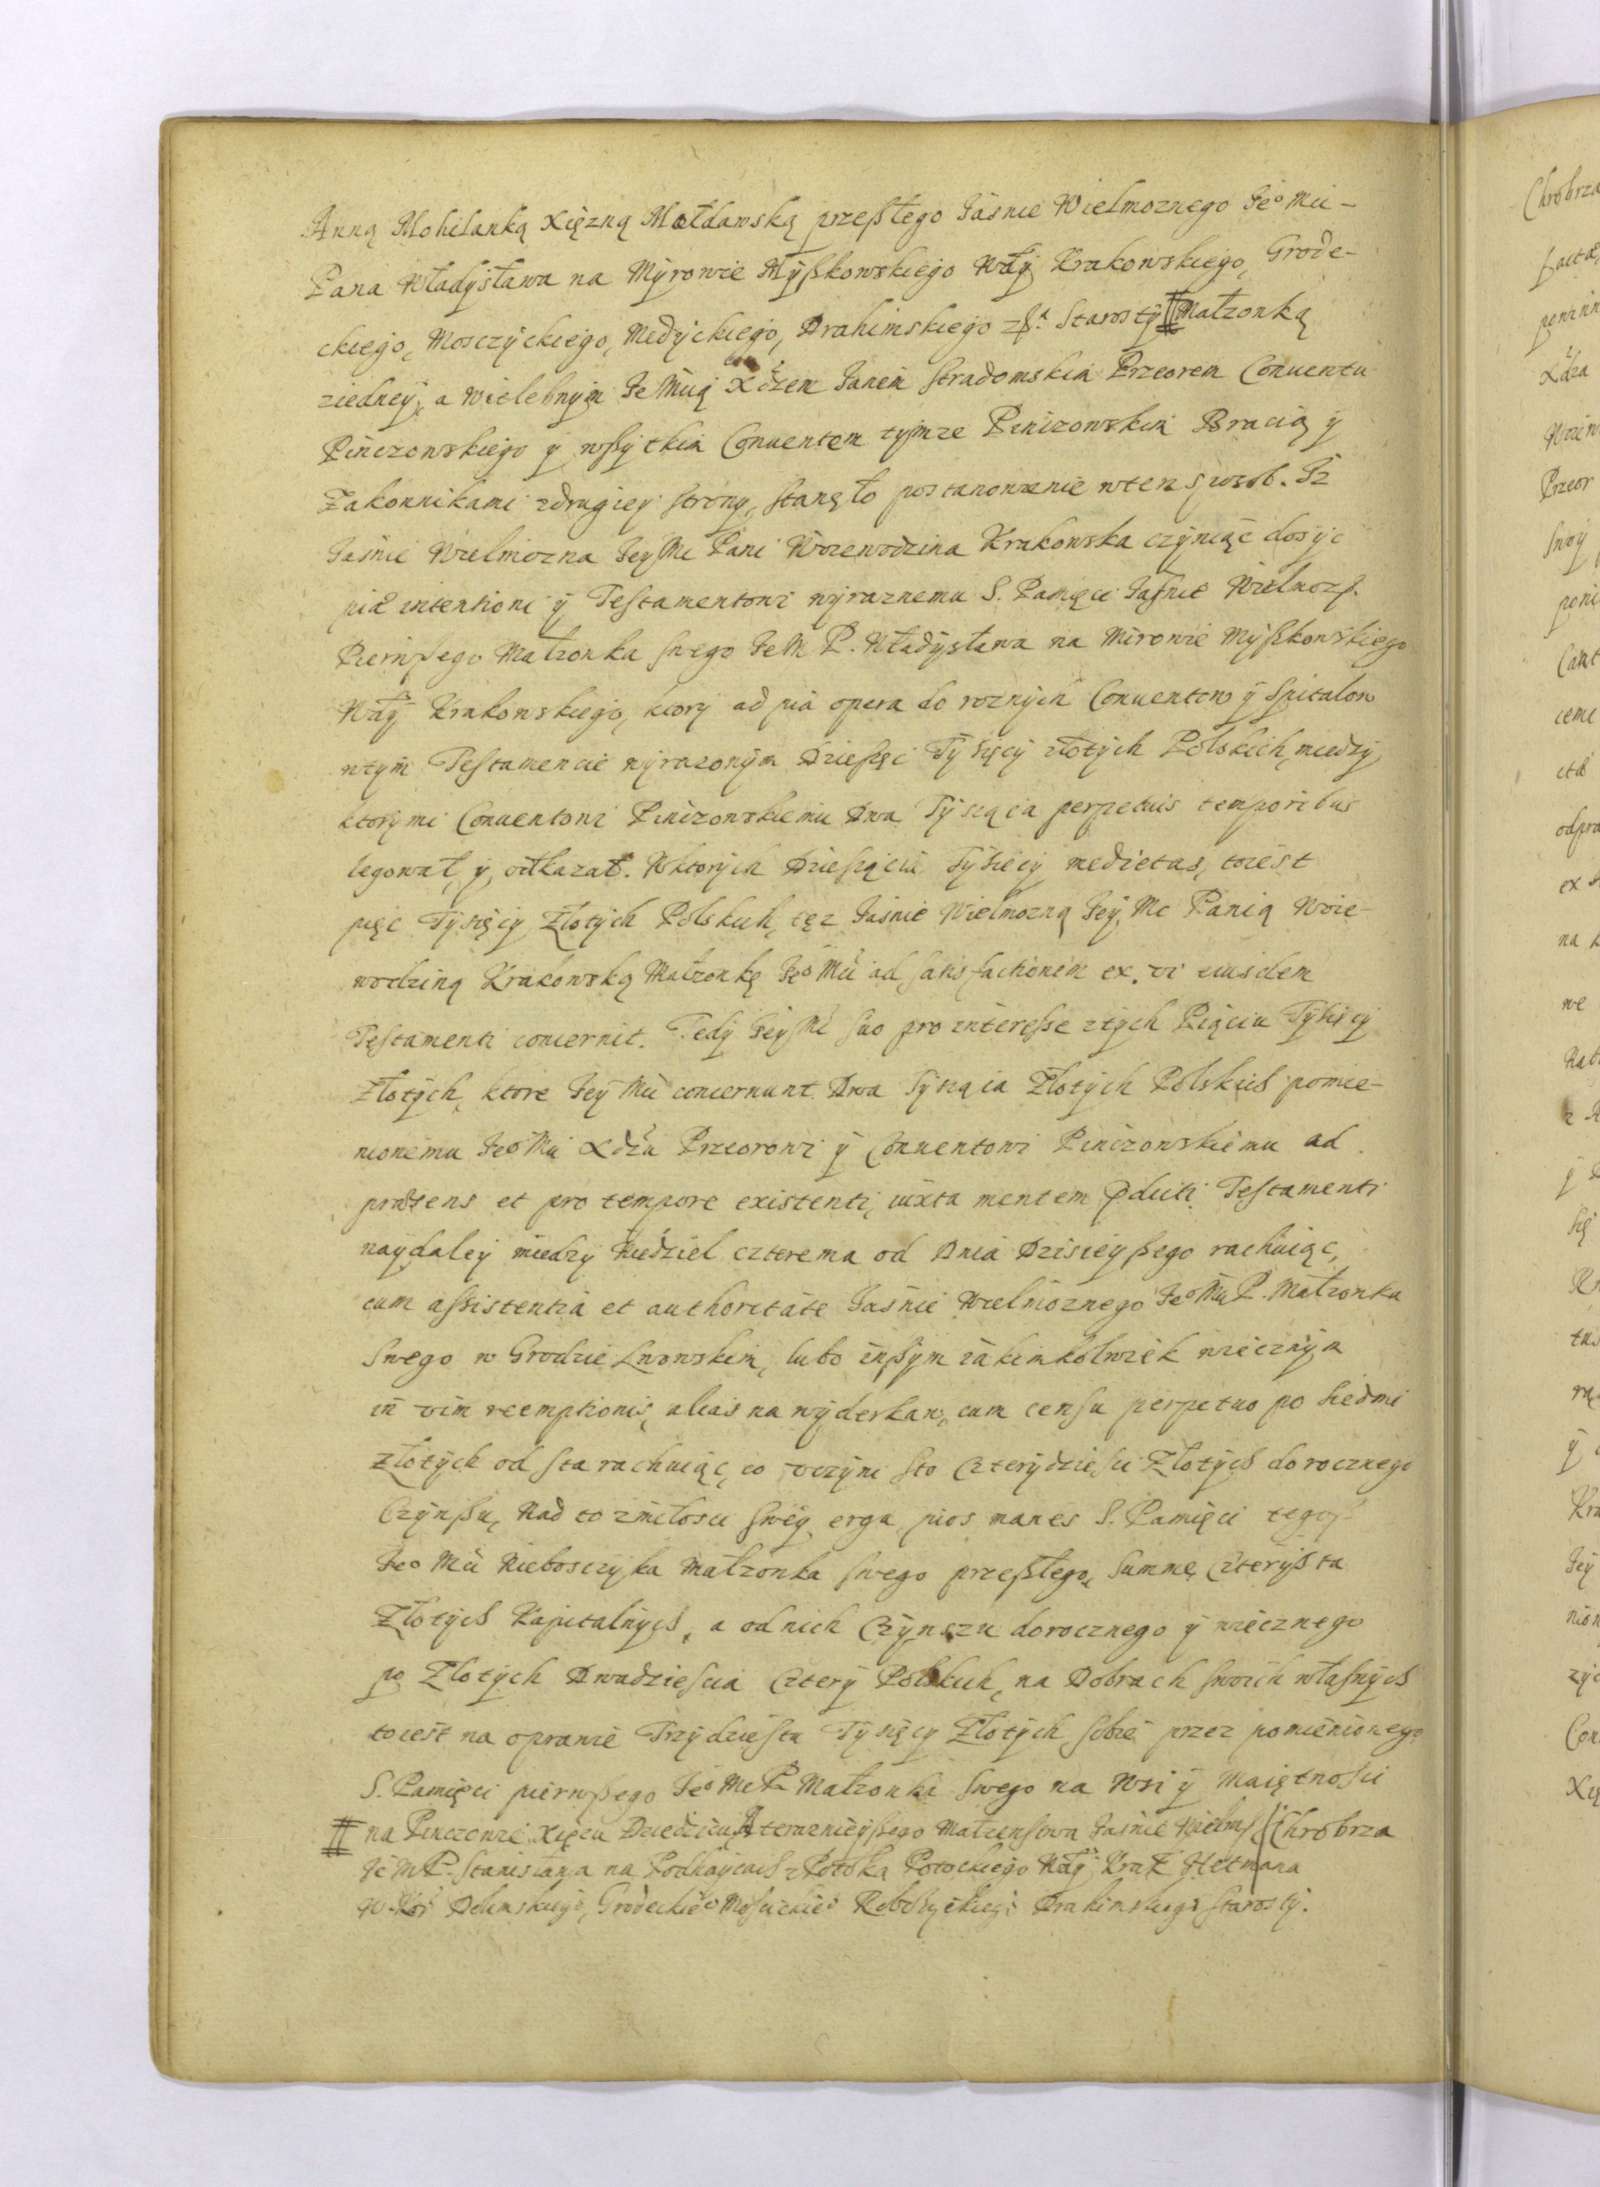 Anną Mohilanką Xięzną Mołdawską przeßłego Jasnie Wielmoznego Jeo Mci-
Pana Władysława na Myrowie Myßkowskiego Wdy Krakowskiego, Grode-
ckiego, Mosczyckiego, Medyckiego, Drahimskiego Starosty Małzonką
ziedney, a Wielebnym Je Mcią Xdzem Janem Stradomskim Przeorem Conuentu
Pinczowskiego y wßytkim Conuentem tymze Pinczowskim Bracią y
Zakonnikami zdrugiey strony, stanęło postanowienie wten sposob. Iz
Jasnie Wielmozna Jey Mc Pani Woiewodzina Krakowska czyniąc dosyc
piæ intentioni y Testamentowi wyraznemu S. Pamięci Jasnie Wielmozß.
Pierwßego Małzonka swego Je M P. Władysława na Mirowie Myßkowskiego
Wdy Krakowskiego, ktory ad pia opera do roznych Conuentow y Spitalow
wtym Testamencie wyrazonym Dziesięc Tysięcy złotych Polskich, miedzy
ktorymi Conuentowi Pinczowskiemu Dwa Tysiąca perpetuis temporibus
legował, y odkazał. Wktorych Dziesiąciu Tysięcy medietas, toiest
pięc Tysięcy Złotych Polskich, tęz Jasnie Wielmozną Jey Mc Panią Woie-
wodziną Krakowską Małzonkę Jeo Mci ad satisfactionem ex vi eiusdem
Testamenti concernit. Tedy Jey Mc suo pro interesse ztych Piąciu Tysięcy
Złotych, ktore Jey Mci concernunt Dwa Tysiąca Złotych Polskich pomie-
nionemu Jeo Mci Xdzu Przeorowi y Conuentowi Pinczowskiemu ad
præsens et pro tempore existenti, iuxta mentem pdicti Testamenti
naydaley miedzy Niedziel czterema od Dnia Dzisieyßego rachuiąc,
cum assistentia et authoritate Jasnie Wielmoznego Jeo Mci P. Małzonka
Swego w Grodzie Lwowskim, lubo inßym iakimkolwiek wiecznym
in vim reemptionis, alias na wyderkaw, cum censu perpetuo po siedmi
złotych od sta rachuiąc, co vczyni sto Czterydziesci Złotych dorocznego
Czynßu, Nad to zmiłosci swey erga pios manes S. Pamięci tegoß
Jeo Mci Nieboszczyka Małzonka swego przeßłego, Summę Czterysta
Złotych Kapitalnych, a od nich Czynszu dorocznego y wiecznego
po Złotych Dwadziescia Cztery Polskich, na Dobrach swoich własnych
toiest na oprawie Trzydziestu Tysięcy Złotych sobie przez pomienionego
S. Pamięci pierwßego Jeo Mc P. Małzonka swego na Wsi y Maiętnosci
na Pinczowie Xięciu Dziedzicu A terazniejßego Małzenstwa Jasnie Wielmß Chrobrza
Je M P. Stanisława na Podhaycach z Potoka Potockiego Wdy Krak Hetmana
W. Kor Delimskiego, Grodeckieo Mosciskieo Robczyckieo Drahimskiego Starosty.